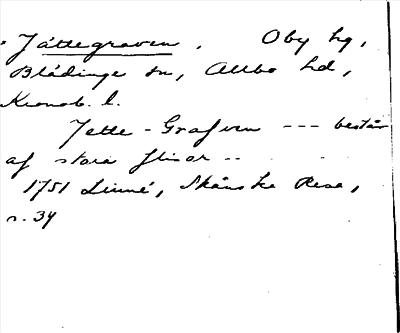 Jättegraven, Oby hg,
Blädinge sn, Allbo hd,
Kronob. l.
Jette-Grafven --- består
af stora flisor --
1751 Linné, Skånska Resa,
s. 34